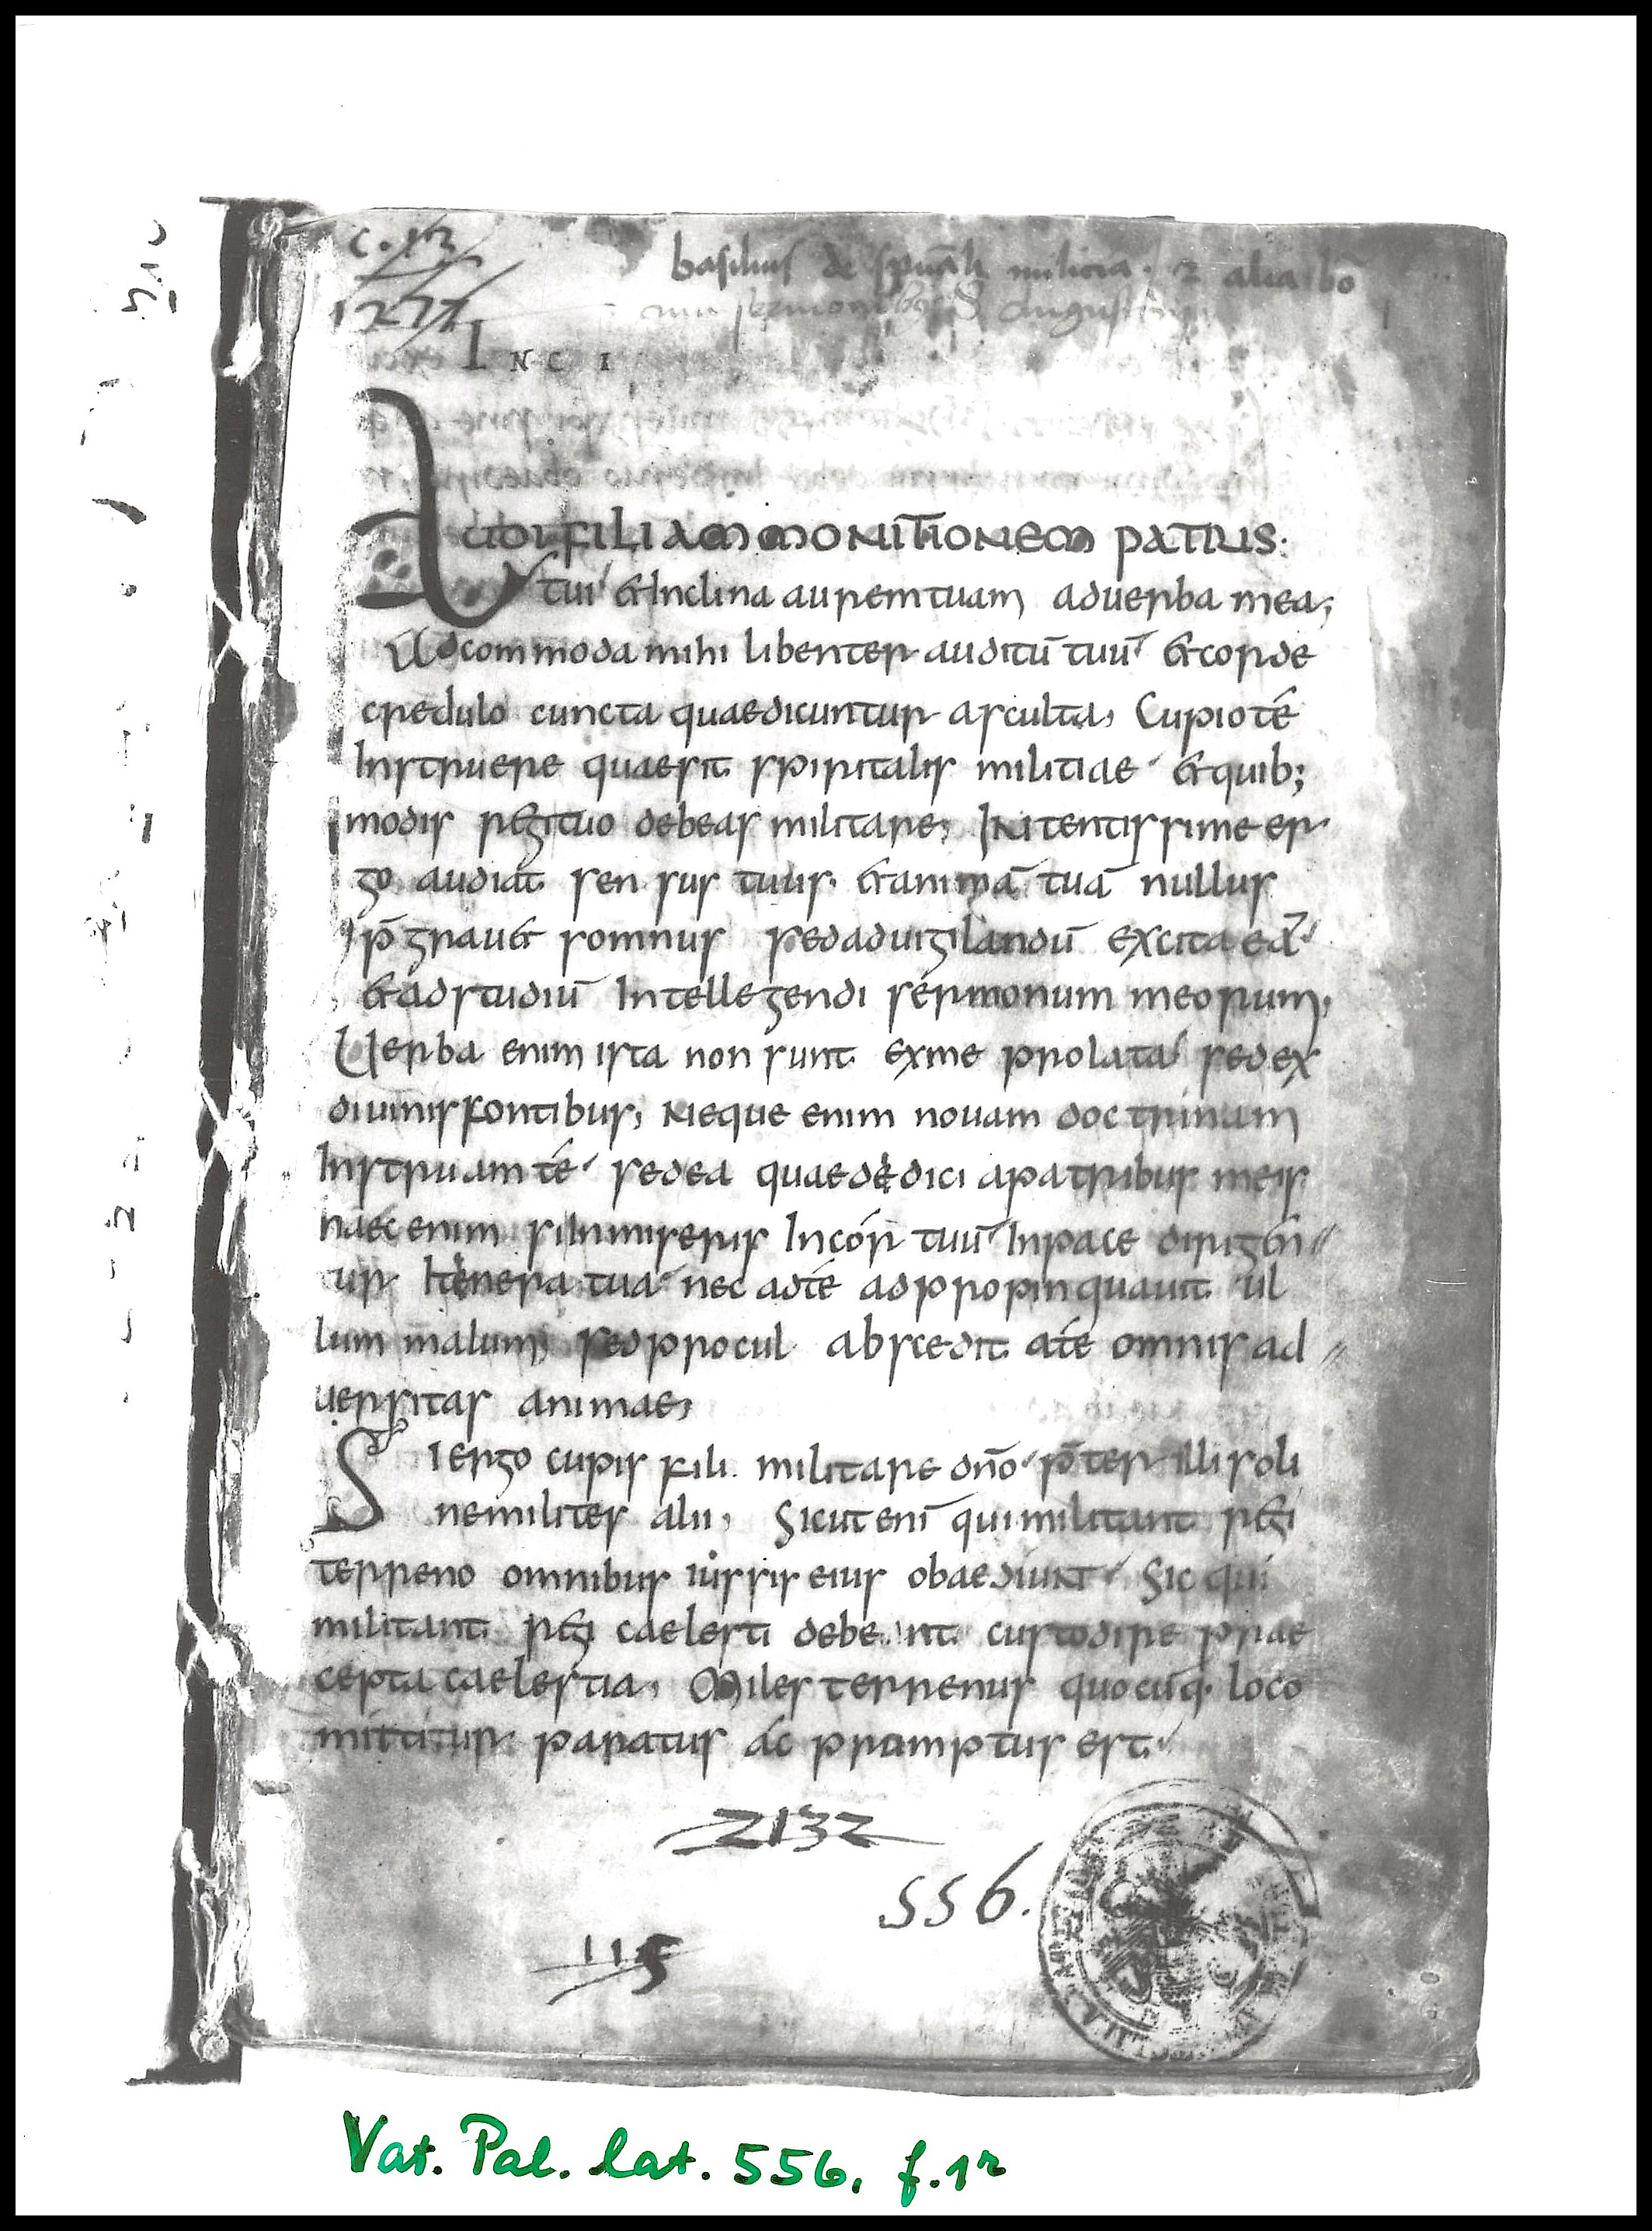 c. 13
basilius de spūali milicia · ⁊ alia bo
1277
num sermo S Augustini
INCI
AUDI FILI AMMONITIONEM PATRIS·
tui &inclina auremtuam aduerba mea;
Adcommoda mihi libenter auditū tuū &corde
credulo cuncta quaedicuntur asculta, Cupioté
Instruere quaesit spiritalis militiae &quib;
modis regituo debeas militare, INtentissime er
go audiat sen sus tuus· &animā tuā nullus
p̄grauet somnus sedaduigilandū excita eā
&adstudiū Intellegendi sermonum meorum,
Uerba enim ista non sunt exme prolata sedex
diuinisfontibus, Neque enim nouam doctrinam
Instruam té sedea quaededici apatribus meis
haec enim siInmiseris Incór tuū Inpace dirigen
tur Itenera tua nec adté adpropinquauit ul
lum malum, sedprocul abscedit até omnis ad
uersitas animae,
Siergo cupis fili militare dn̄o p̄ter illi soli
nemilites alii, Sicut enī quimilitant regi
terreno omnibus iussis eius obaediunt Sic qui
militant regi caelesti debent custodire prae
cepta caelestia, Miles terrenus quocūq· loco
mittitur paratus ác promptus est
2132
556.
115
Vat. Pal. lat. 556, f. 1r